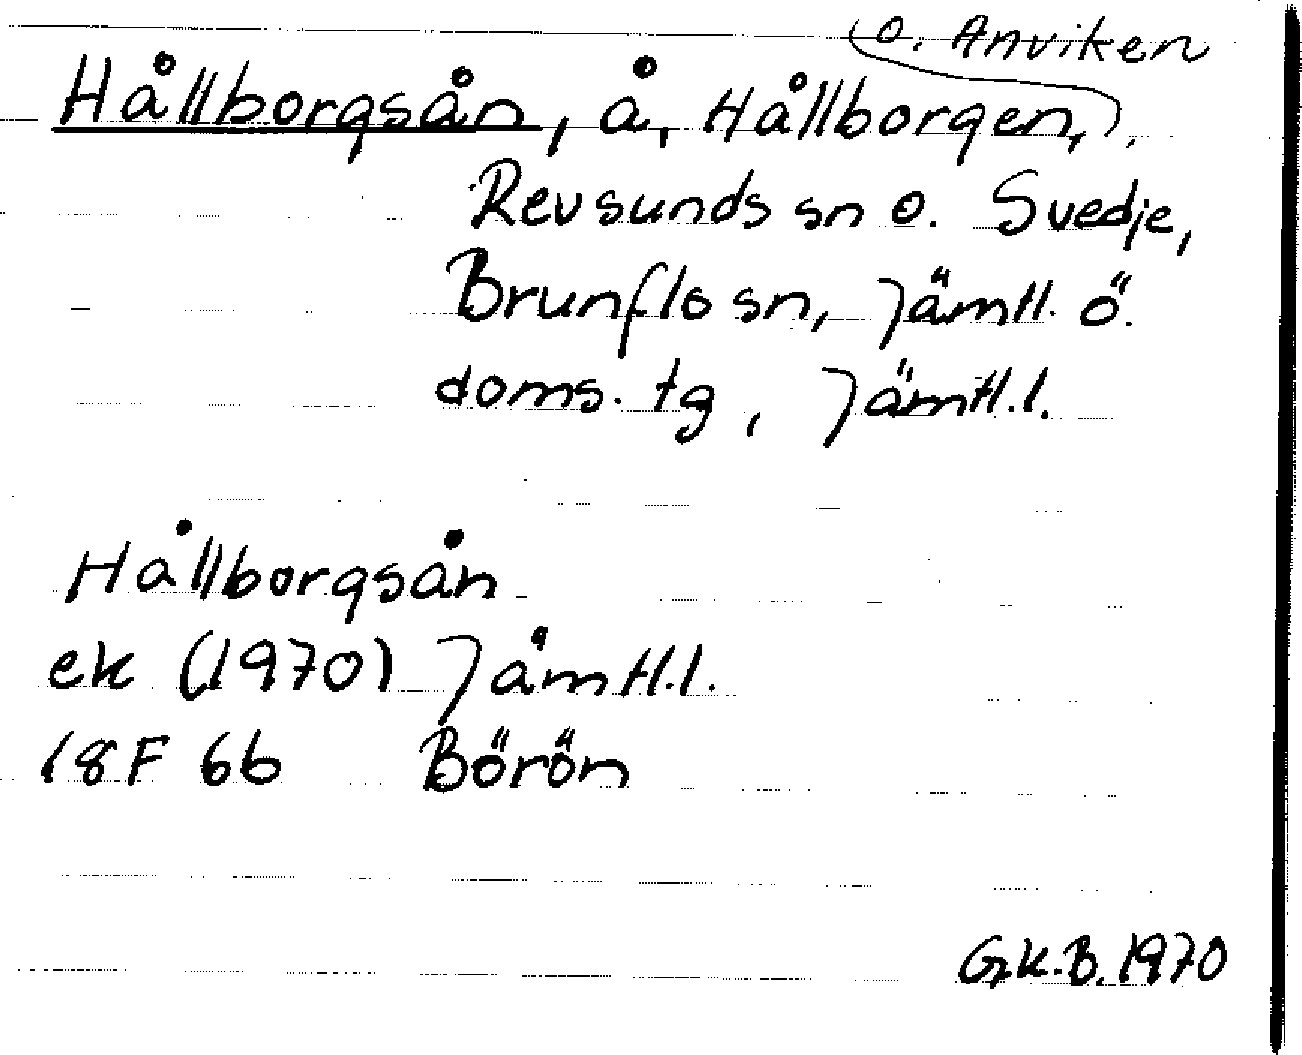 o. Anviken
Hållborgsån, å, Hållborgen,
Revsunds sn o. Svedje,
Brunflo sn, Jämtl. ö.
doms. tg, Jämtl.l.
Hållborgsån
ek (1970) Jämtl.l.
18F 6b Börön
G.k.B. 1970